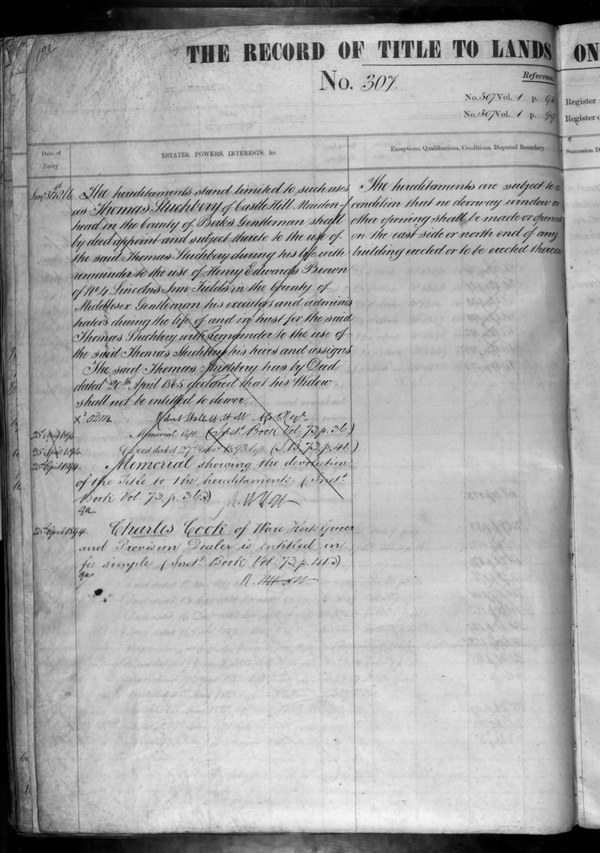 THE RECORD OF TITLE TO LANDS ON
No. 307
Reference
No. 307 Vol. 1 p.
No. 307 Vol. 1 p.
Register
Register
Date of Entry
ESTATES, POWERS, INTERESTS, &c.
Exceptions, Qualifications, Conditions, Disputed Boundary
Succession D
The hereditaments stand limited to such uses
as Thomas Stuchbery of Castle Hill Maiden-
head in the County of Berks Gentleman shall
by deed appoint and subject thereto to the use of
the said Thomas Stuchbery during his life with
remainder to the use of Henry Edwards Brown
of No 4 Lincolns Inn Fields in the County of
Middlesex Gentleman his executors and adminis
trators during the life of and in trust for the said
Thomas Stuchbery with remainder to the use of
the said Thomas Stuchbery his heirs and assigns
The said Thomas Stuchbery has by Deed
dated 20th April 1865 declared that his Widow
shall not be entitled to dower
The hereditaments are subject to a
condition that no doorway window or
other opening shall be made or opened
on the east side or north end of any
building erected or to be erected thereon
25 April 1894 Memorial (Inst. Book Vol 73 p. 36.)
25 April 1894 Deed dated 27 1893 (I.B. 73 p. 41.)
25 April 1894 Memorial showing the devolution
of the Title to the hereditaments (Inst.
Book Vol 73 p. 36.)
25 April 1894 Charles Cook of Ware Herts Grocer
and Provision Dealer is entitled in
fee simple (Inst. Book Vol 73 p. 41.)